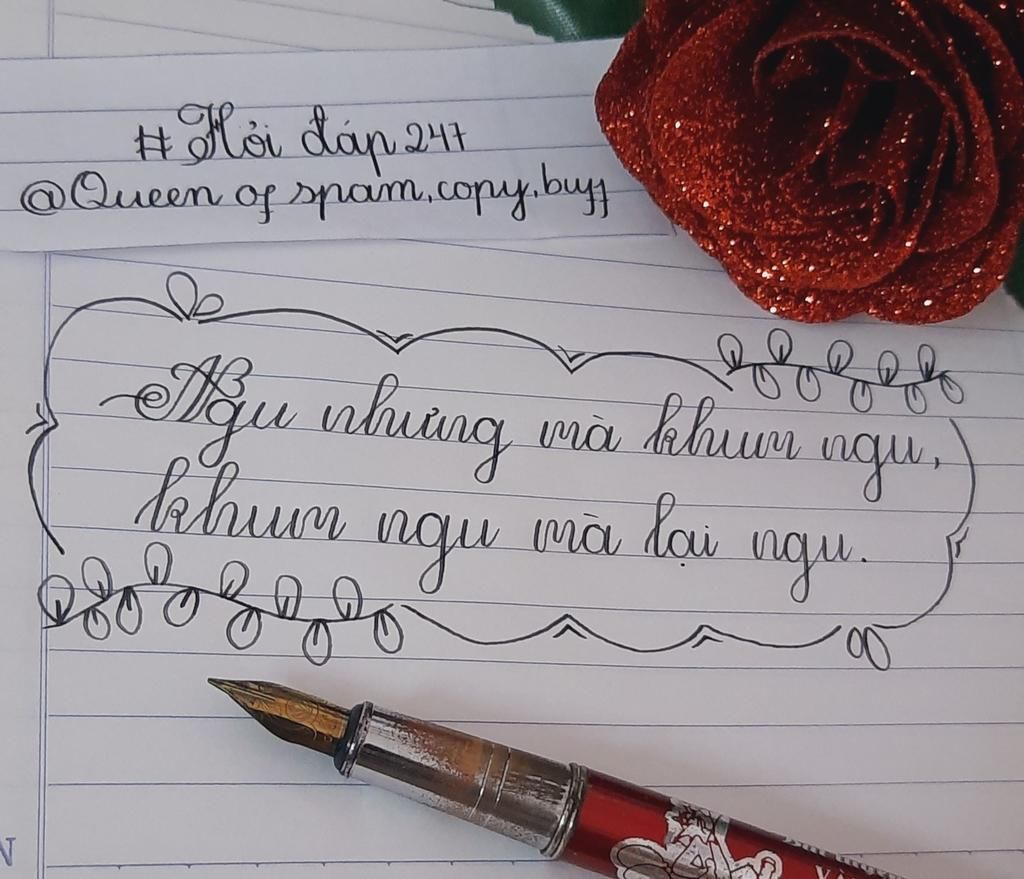 # Hỏi đáp 247
@Queen of spam,copy,buff
Ngu nhưng mà khum ngu,
khum ngu mà lại ngu.
N